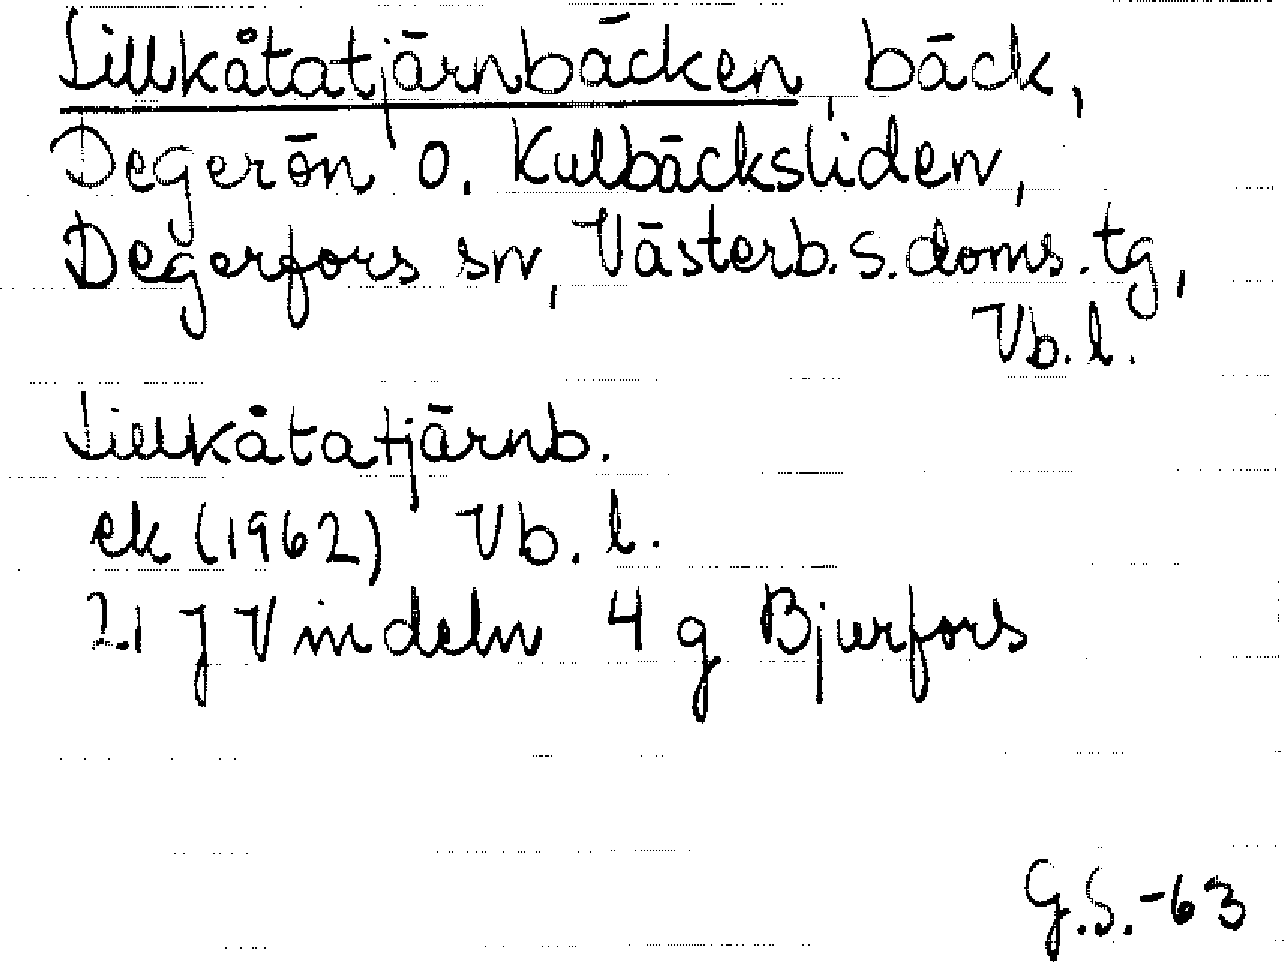 Lillkåtatjärnbäcken, bäck,
Degerön o. Kulbäcksliden,
Degerfors sn, Västerb. s. doms. tg,
Vb. l.
Lillkåtatjärnb.
ek (1962) Vb. l.
21 J Vindeln 4 g Bjurfors
G.S.-63